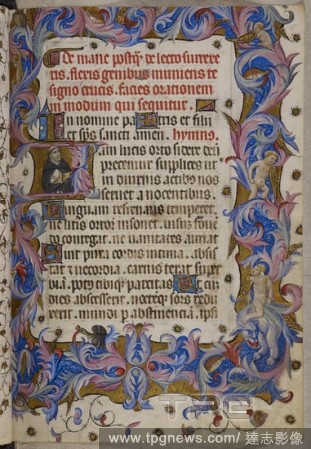 De mane postq̃ de lecto surrexe
ris. flexis genibus muniens te
signo crucis. facies orationem
in modum qui sequitur.
In nomine patris et filii
et sp̄s sancti amen. hymns.
Iam lucis orto sidere deū
precemur supplices ut
in diurnis actibꝰ nos
seruet a nocentibus.
Linguam refrenans temperet.
ne litis orror insonet. uisus fouē
do contegat. ne uanitates auriat
Sint pura cordis intima. absis
tat et uecordia. carnis terat super
bia. potꝰ cibiqꝫ parcitas Ut cū
dies abscesserit. noctēqꝫ sors redu
xerit. mundi p̱ abstinenciā. ipsi
TPG
www.tpgnews.com/ 達志影像